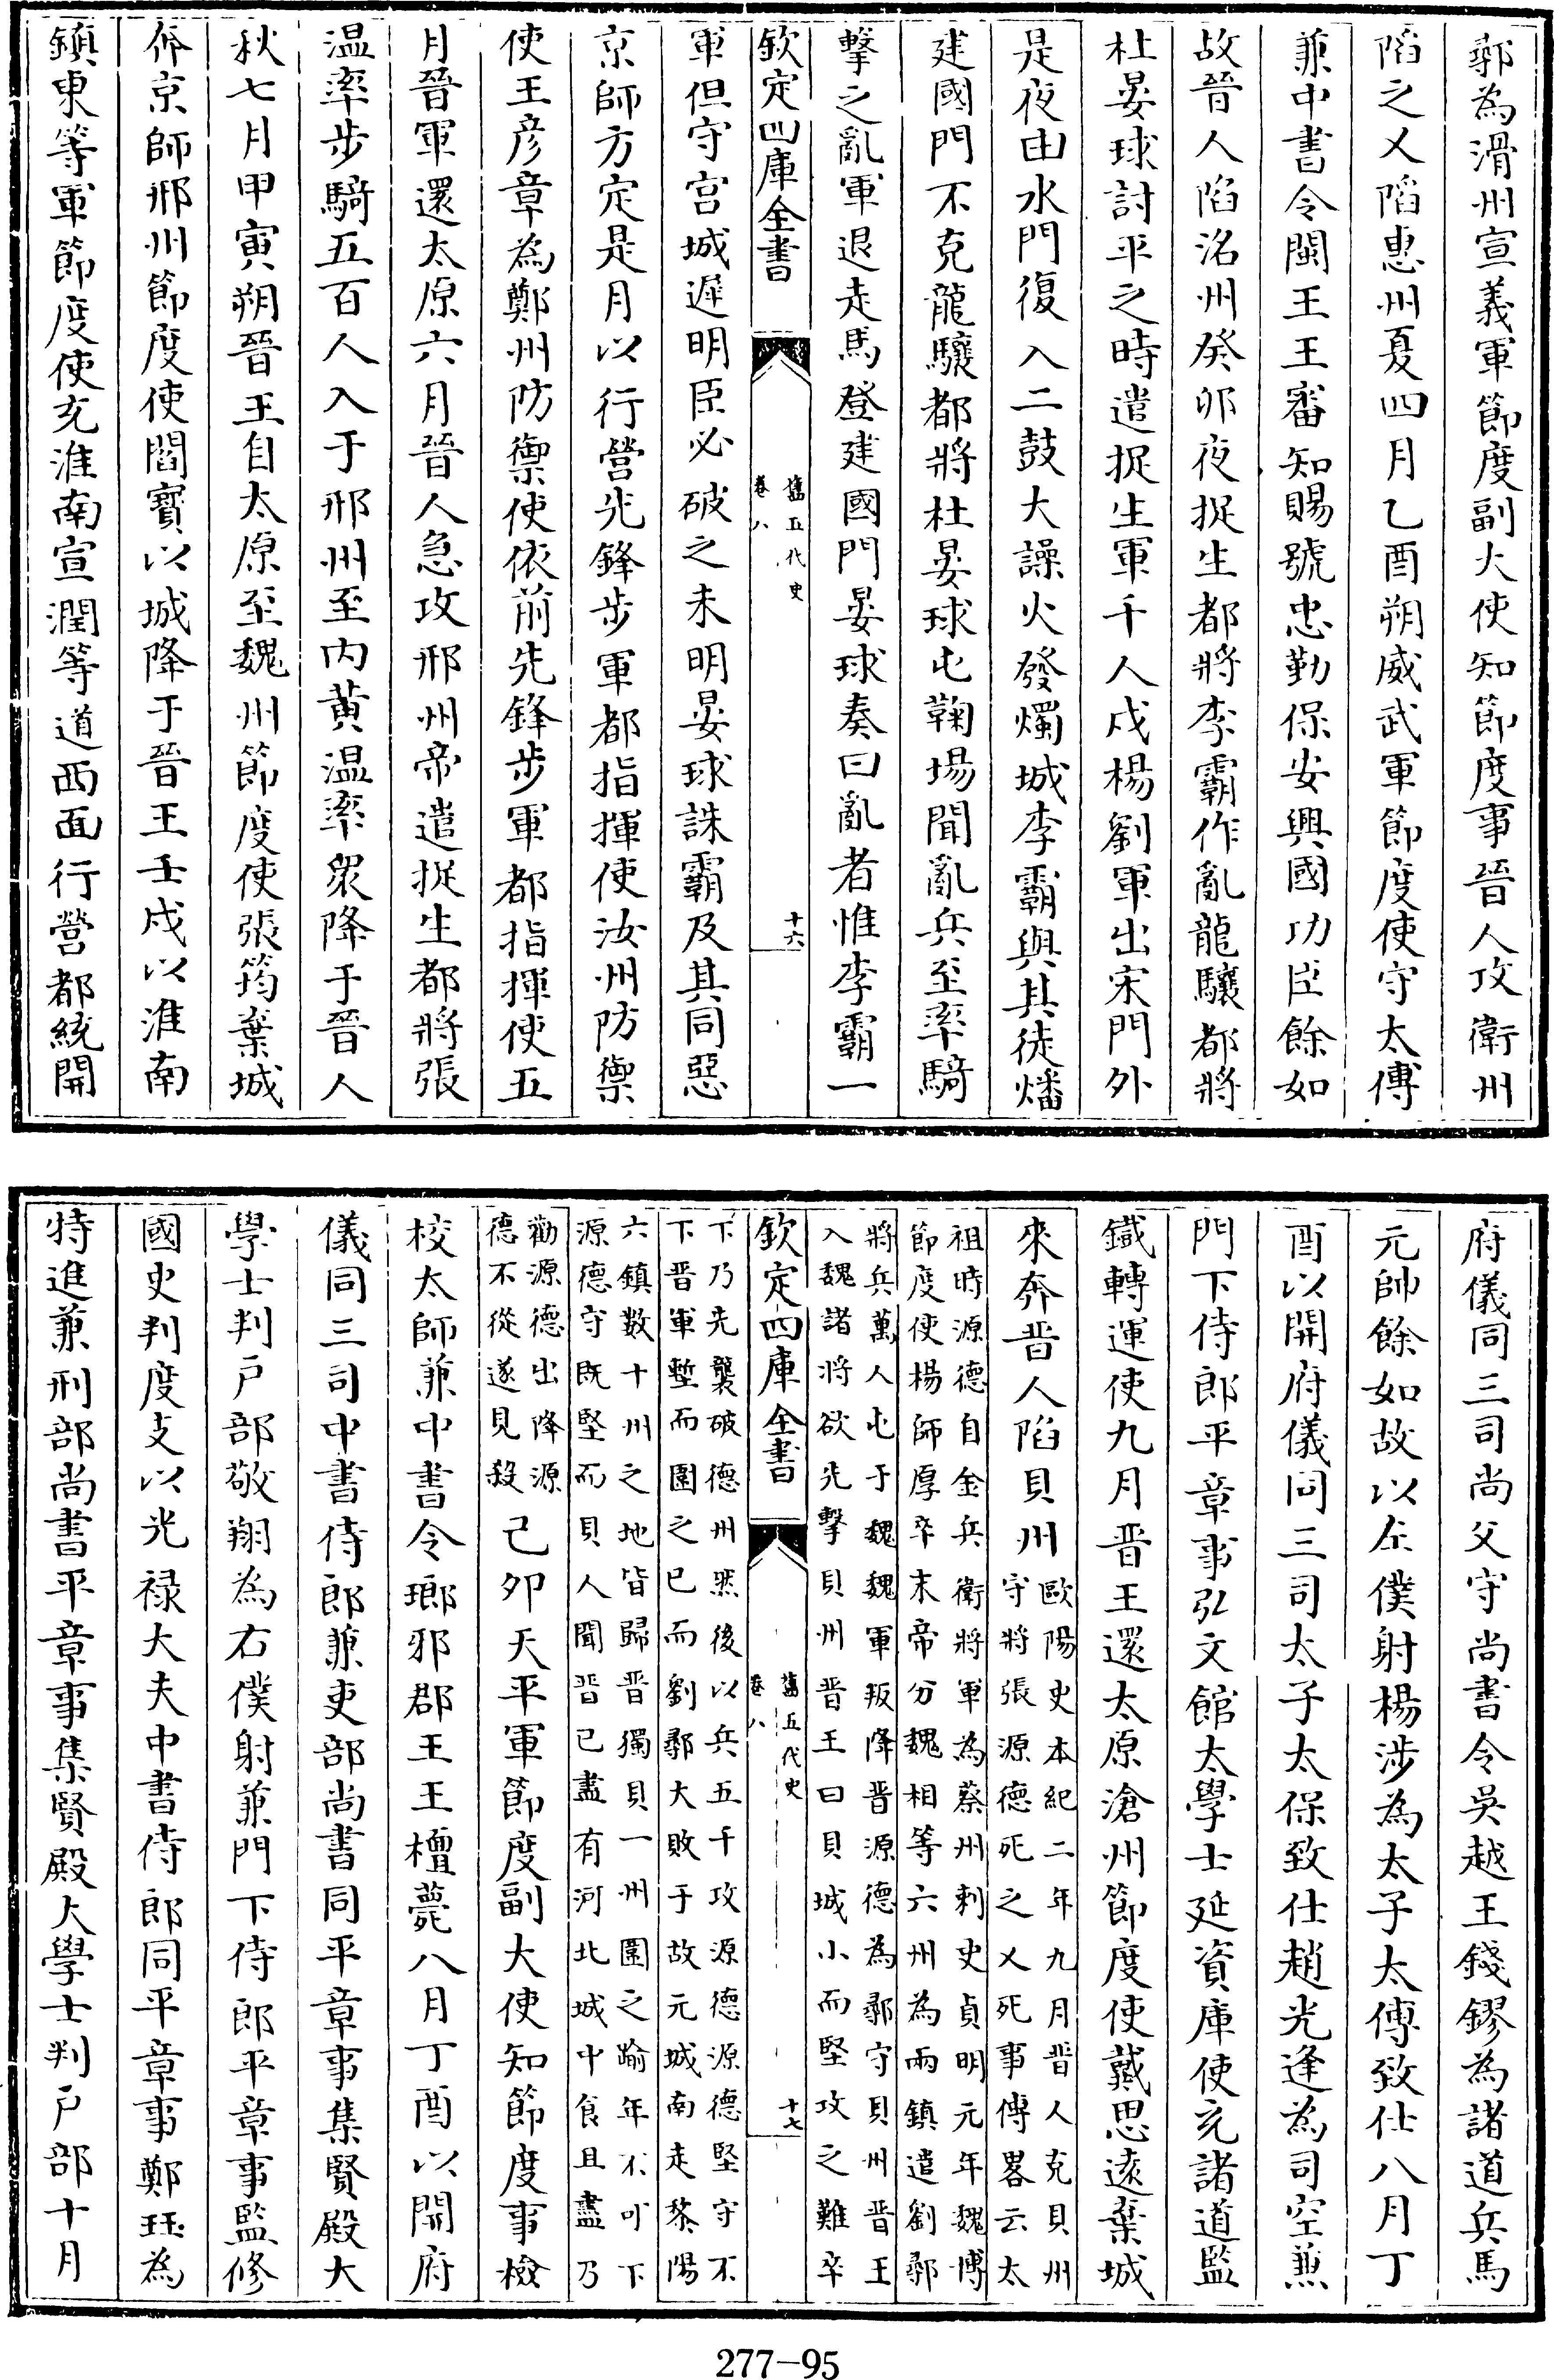 鄩為滑州宣義軍節度副大使知節度事晉人攻衛州
陷之又陷惠州夏四月乙酉朔威武軍節度使守太傅
兼中書令閩王王審知賜號忠勤保安興國功臣餘如
故晉人陷洺州癸卯夜捉生都將李霸作亂龍驤都將
杜晏球討平之時遣捉生軍千人戍楊劉軍出宋門外
是夜由水門復入二鼓大譟火發燭城李霸與其徒燔
建國門不克龍驤都將杜晏球屯鞠場聞亂兵至率騎
擊之亂軍退走馬登建國門晏球奏曰亂者惟李霸一
欽定四庫全書
舊五代史
卷八
十六
軍但守宮城遲明臣必破之未明晏球誅霸及其同惡
京師方定是月以行營先鋒步軍都指揮使汝州防禦
使王彦章為鄭州防禦使依前先鋒步軍都指揮使五
月晉軍還太原六月晉人急攻邢州帝遣捉生都將張
温率步騎五百人入于邢州至内黄温率衆降于晉人
秋七月甲寅朔晉王自太原至魏州節度使張筠棄城
奔京師邢州節度使閻寶以城降于晉王壬戌以淮南
鎮東等軍節度使充淮南宣潤等道西面行營都統開
府儀同三司尚父守尚書令吳越王錢鏐為諸道兵馬
元帥餘如故以左僕射楊涉為太子太傅致仕八月丁
酉以開府儀同三司太子太保致仕趙光逢為司空兼
門下侍郎平章事弘文館太學士延資庫使充諸道鹽
鐵轉運使九月晉王還太原滄州節度使戴思遠棄城
來奔晉人陷貝州
歐陽史本紀二年九月晉人克貝州
守將張源德死之又死事傳畧云太
祖時源德自金兵衛將軍為蔡州刺史貞明元年魏博
節度使楊師厚卒末帝分魏相等六州為兩鎮遣劉鄩
將兵萬人屯于魏魏軍叛降晉源德為鄩守貝州晉王
入魏諸將欲先擊貝州晉王曰貝城小而堅攻之難卒
欽定四庫全書
舊五代史
卷八
十七
下乃先襲破德州然後以兵五千攻源德源德堅守不
下晉軍塹而圍之已而劉鄩大敗于故元城南走黎陽
六鎮數十州之地皆歸晉獨貝一州圍之踰年不可下
源德守既堅而貝人聞晉已盡有河北城中食且盡乃
勸源德出降源
德不從遂見殺
己夘天平軍節度副大使知節度事檢
校太師兼中書令瑯邪郡王王檀薨八月丁酉以開府
儀同三司中書侍郎兼吏部尚書同平章事集賢殿大
學士判户部敬翔為右僕射兼門下侍郎平章事監修
國史判度支以光禄大夫中書侍郎同平章事鄭珏為
特進兼刑部尚書平章事集賢殿大學士判户部十月
277-95